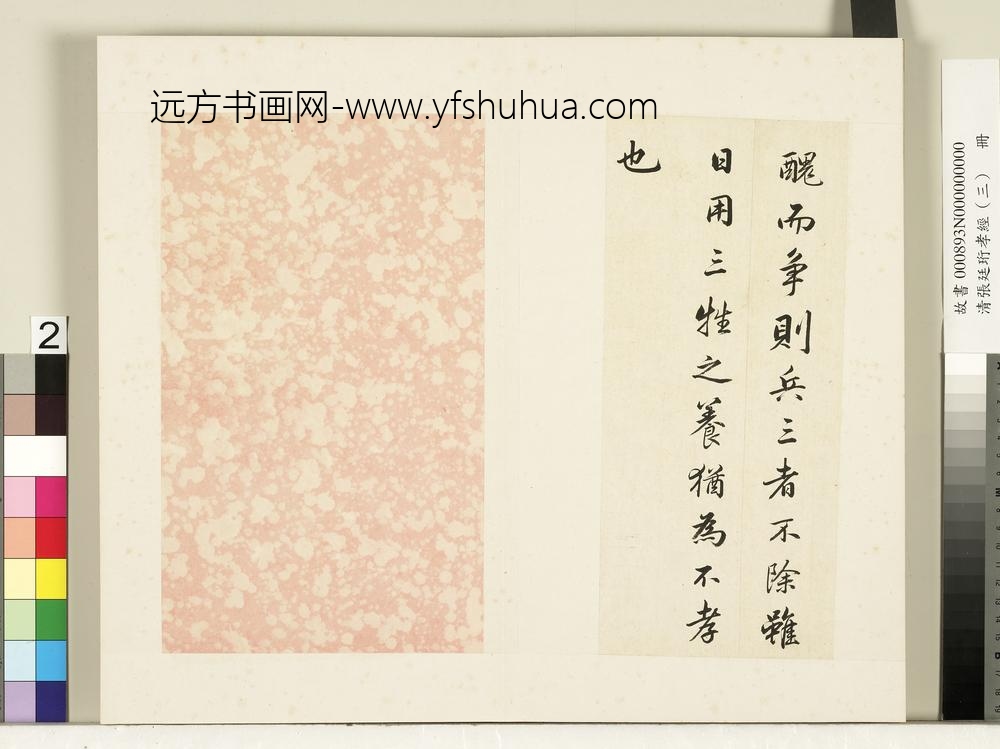 远方书画网-www.yfshuhua.com
醜而争則兵三者不除雖
日用三牲之養猶為不孝
也
故書 000893N000000000
清張廷珩孝經（三） 冊
2